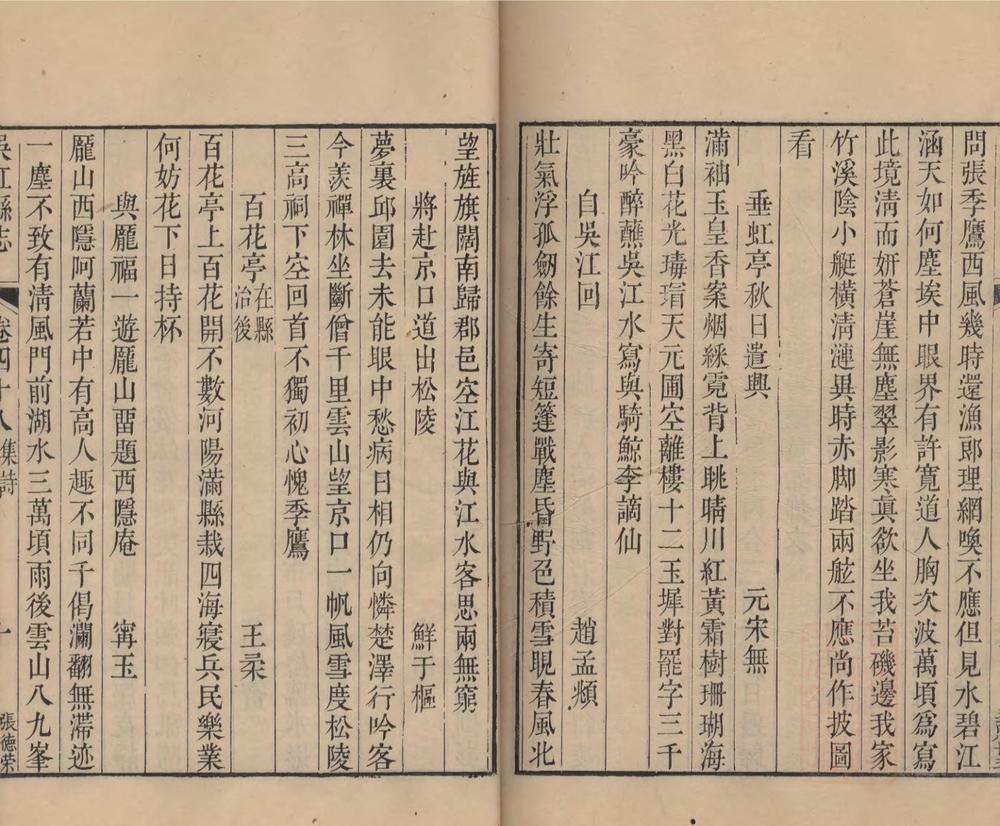 問張季鷹西風幾時還漁郎理網喚不應但見水碧江
涵天如何塵埃中眼界有許寬道人胸次波萬頃爲寫
此境淸而妍蒼崖無塵翠影寒眞欲坐我苔磯邊我家
竹溪陰小艇橫淸漣異時赤脚踏兩舷不應尚作披圖
看
垂虹亭秋日遣興 元宋無
滿袖玉皇香案烟綵霓背上眺晴川紅黃霜樹珊瑚海
黑白花光瑇瑁天元圃空離樓十二玉墀對罷字三千
豪吟醉蘸吳江水寫與騎鯨李謫仙
自吳江回 趙孟頫
壯氣浮孤劒餘生寄短篷戰塵昏野色積雪晛春風北
望旌旗闊南歸郡邑空江花與江水客思兩無窮
將赴京口道出松陵 鮮于樞
夢裏邱園去未能眼中愁病日相仍向憐楚澤行吟客
今羨禪林坐斷僧千里雲山望京口一帆風雪度松陵
三高祠下空回首不獨初心愧季鷹
百花亭在縣治後 王桼
百花亭上百花開不數河陽滿縣栽四海寢兵民樂業
何妨花下日持杯
與龐福一遊龐山畱題西隱庵 甯玉
龐山西隱阿蘭若中有高人趣不同千偈瀾翻無滯迹
一塵不致有淸風門前湖水三萬頃雨後雲山八九峯
吳江縣志 卷四十八 集詩 十 張德榮